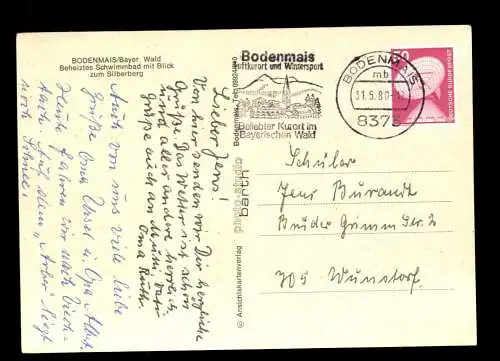 BODENMAIS/Bayer. Wald
Beheiztes Schwimmbad mit Blick
zum Silberberg
Bodenmais
Luftkurort und Wintersport
Beliebter Kurort im
Bayerischen Wald
BODENMAIS
mb
31.5.80-12
8373
50
Lieber Jens!
Von hier senden wir Dir herzliche
Grüße. Das Wetter ist schön
und alles andere herrlich
Grüße auch an Mutti, Vati
Oma Ruth.
Auch von uns viele liebe
Grüße Oma Ursel u. Opa Albert.
Heute fahren wir nach
auf dem "Arber" liegt
noch Schnee!
© Ansichtskartenverlag
photo-studio
barth
Bodenmais, Tel.
Schüler
Jens Burandt
Brüder Grimm Str. 2
305 Wunstorf